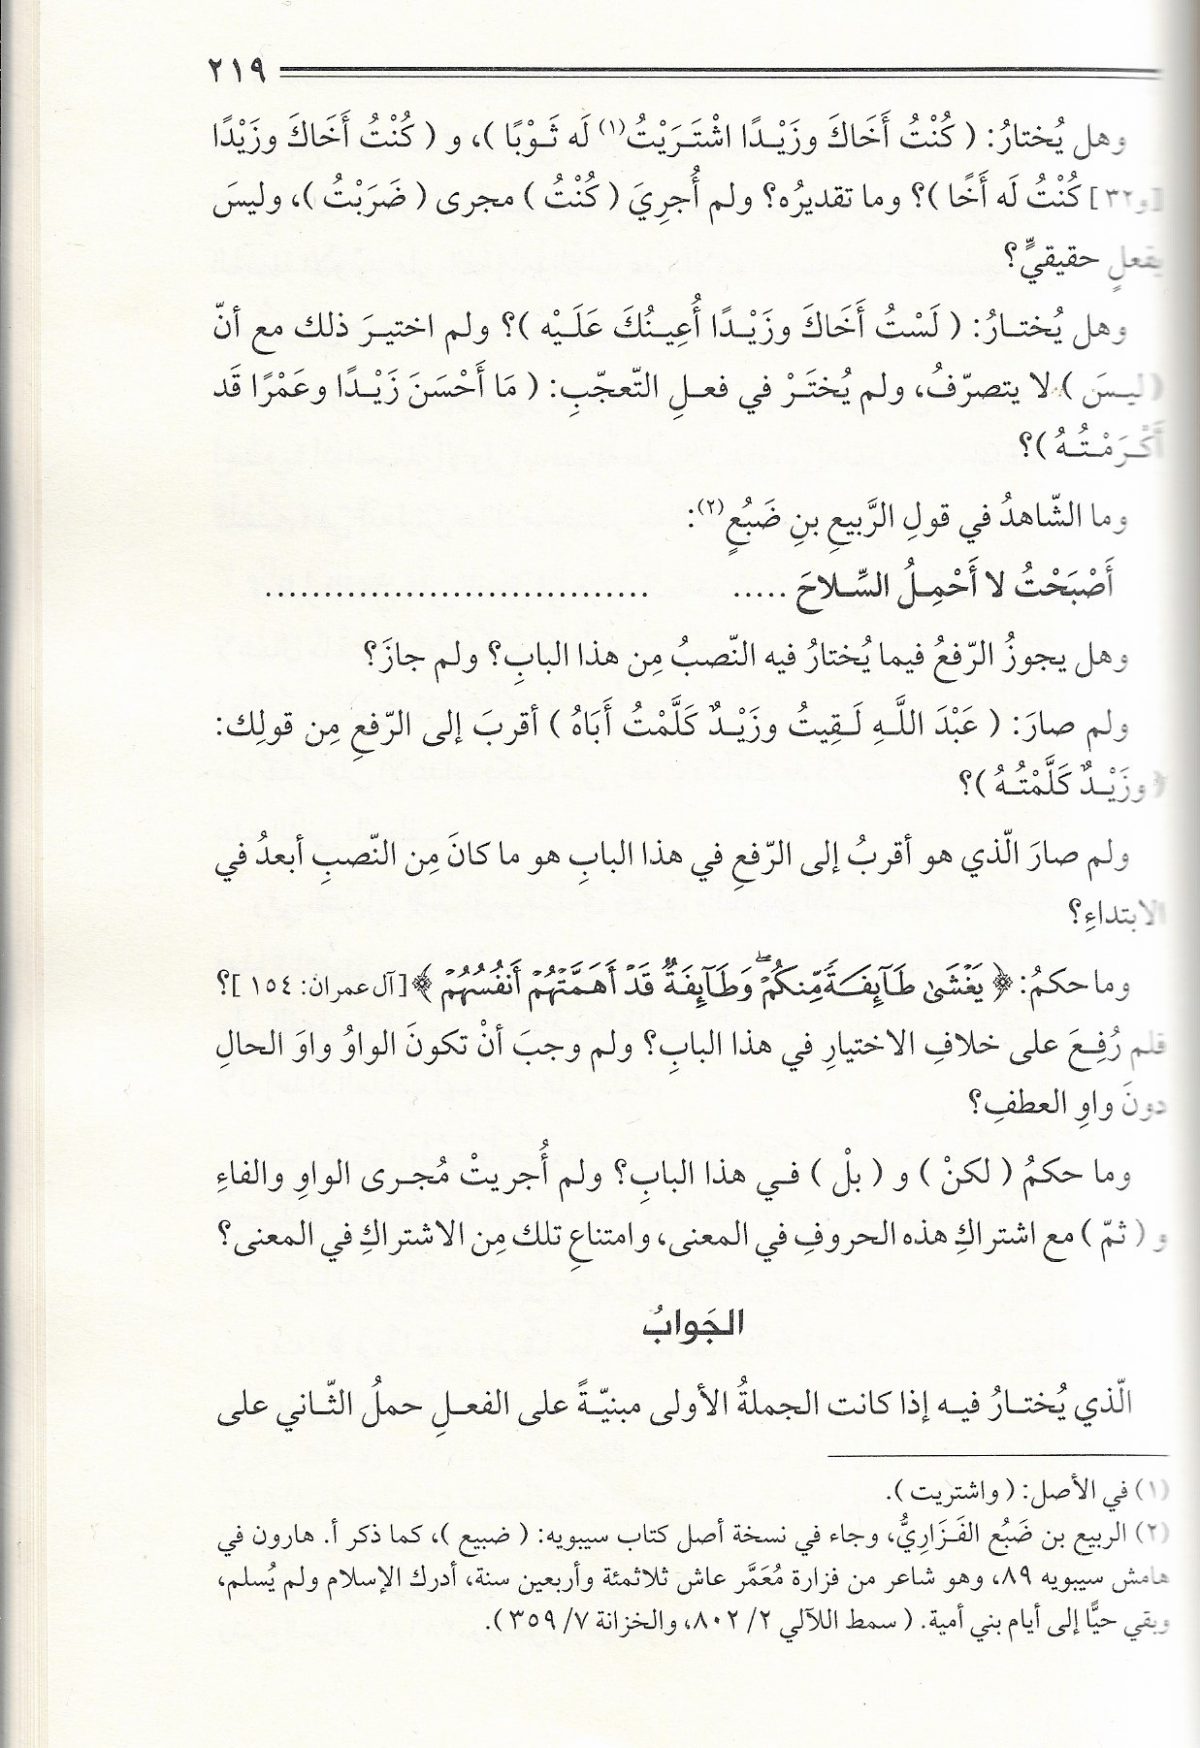 ٢١٩
وهل يُختارُ: ( كُنْتُ أَخَاكَ وزَيْدًا اشْتَرَيْتُ(١) لَه ثَوْبًا )، و ( كُنْتُ أَخَاكَ وزَيْدًا
[و٣٢] كُنْتُ لَه أَخًا )؟ وما تقديرُه؟ ولم أُجرِيَ ( كُنْتُ ) مجرى ( ضَرَبْتُ )، وليسَ
بفعلٍ حقيقيٍّ؟
وهل يُختارُ: ( لَسْتُ أَخَاكَ وزَيْدًا أُعِينُكَ عَلَيْه )؟ ولم اختيرَ ذلك مع أنّ
( ليسَ ) لا يتصرّفُ، ولم يُختَرْ في فعلِ التّعجّبِ: ( مَا أَحْسَنَ زَيْدًا وعَمْرًا قَد
أَكْرَمْتُهُ )؟
وما الشّاهدُ في قولِ الرَّبيعِ بنِ ضَبُعٍ(٢):
أَصْبَحْتُ لا أَحْمِلُ السِّلاحَ ..... .................................
وهل يجوزُ الرّفعُ فيما يُختارُ فيه النّصبُ مِن هذا البابِ؟ ولم جازَ؟
ولم صارَ: ( عَبْدَ اللَّهِ لَقِيتُ وزَيْدٌ كَلَّمْتُ أَبَاهُ ) أقربَ إلى الرّفعِ مِن قولِك:
( وزَيْدٌ كَلَّمْتُهُ )؟
ولم صارَ الّذي هو أقربُ إلى الرّفعِ في هذا البابِ هو ما كانَ مِن النّصبِ أبعدُ في
الابتداءِ؟
وما حكمُ: ﴿ يَغْشَىٰ طَآئِفَةً مِّنكُمْ ۖ وَطَآئِفَةٌ قَدْ أَهَمَّتْهُمْ أَنفُسُهُمْ ﴾ [آل عمران: ١٥٤]؟
فلم رُفِعَ على خلافِ الاختيارِ في هذا البابِ؟ ولم وجبَ أنْ تكونَ الواوُ واوَ الحالِ
دونَ واوِ العطفِ؟
وما حكمُ ( لكنْ ) و ( بلْ ) في هذا البابِ؟ ولم أُجريتْ مُجرى الواوِ والفاءِ
و ( ثمّ ) مع اشتراكِ هذه الحروفِ في المعنى، وامتناعِ تلك مِن الاشتراكِ في المعنى؟
الجَوابُ
الّذي يُختارُ فيه إذا كانت الجملةُ الأولى مبنيّةً على الفعلِ حملُ الثّاني على
(١) في الأصل: ( واشتريت ).
(٢) الربيع بن ضَبُع الفَزَارِيُّ، وجاء في نسخة أصل كتاب سيبويه: ( ضبيع )، كما ذكر أ. هارون في
هامش سيبويه ٨٩، وهو شاعر من فزارة مُعَمَّر عاش ثلاثمئة وأربعين سنة، أدرك الإسلام ولم يُسلم،
وبقي حيًّا إلى أيام بني أمية. ( سمط اللآلي ٢/ ٨٠٢، والخزانة ٧/ ٣٥٩ ).